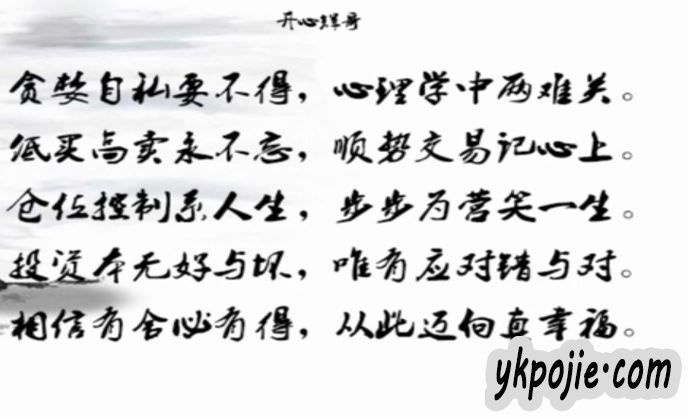 开心辉哥
贪婪自私要不得，心理学中两难关。
低买高卖永不忘，顺势交易记心上。
仓位控制系人生，步步为营笑一生。
投资本无好与坏，唯有应对错与对。
相信有舍必有得，从此迈向真幸福。
ykpojie.com